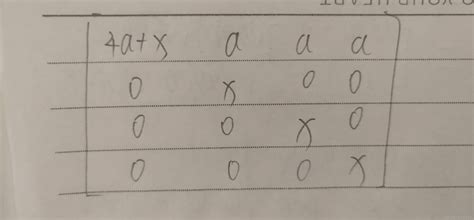 4a+x a a a
0 x 0 0
0 0 x 0
0 0 0 x